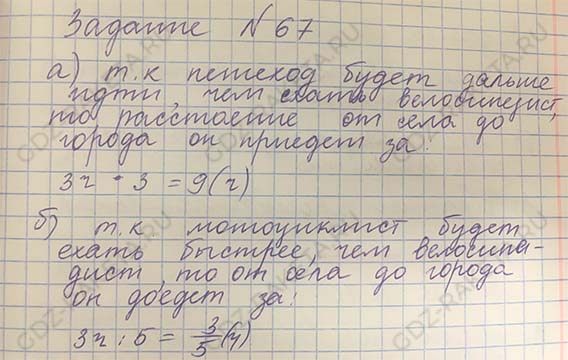 Задание №67
а) т.к пешеход будет дальше
идти, чем ехать велосипедист,
то расстояние от села до
города он приедет за:
3ч · 3 = 9(ч)
б) т.к мотоциклист будет
ехать быстрее, чем велосипе-
дист, то от села до города
он доедет за:
3ч : 5 = 3/5 (ч)
GDZ-RAKETA.RU